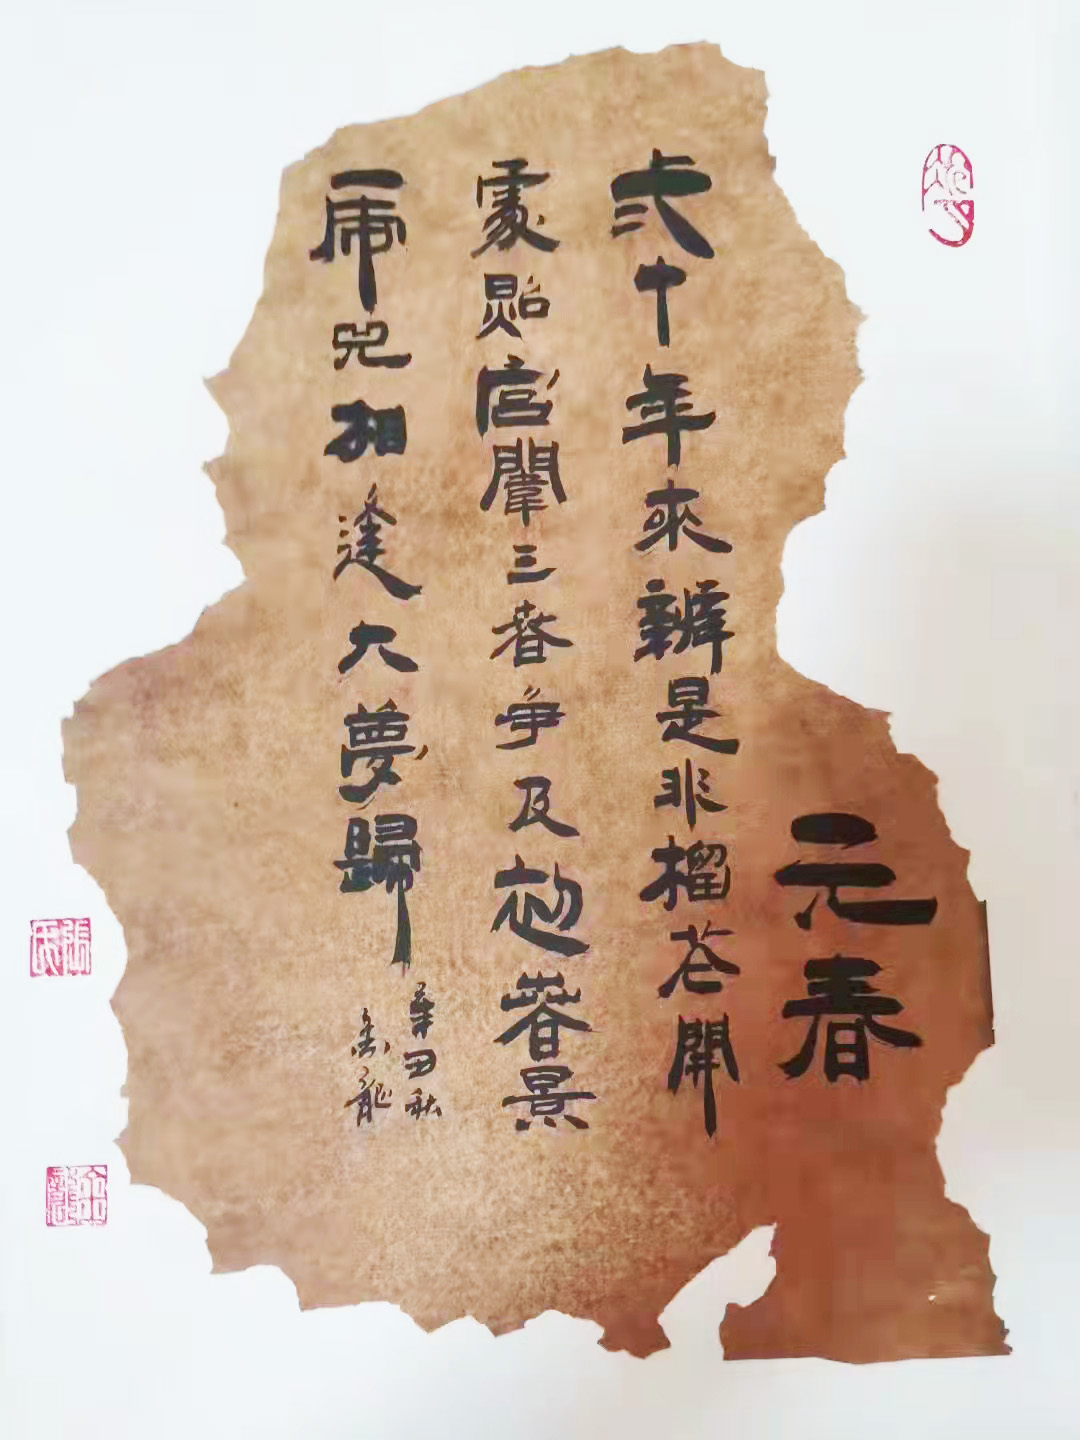 元春
弍十年來辨是非榴花開
處照宮闈三春爭及初春景
虎兕相逢大夢歸
辛丑秋
張氏